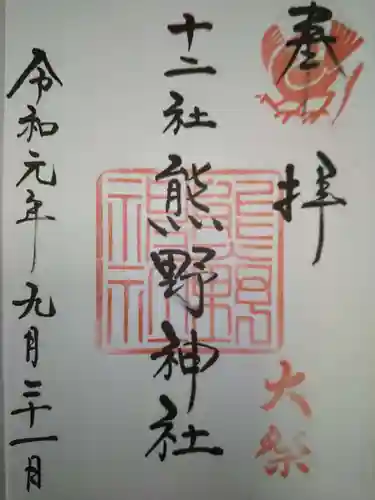 奉拝
大祭
十二社熊野神社
令和元年九月二十一月